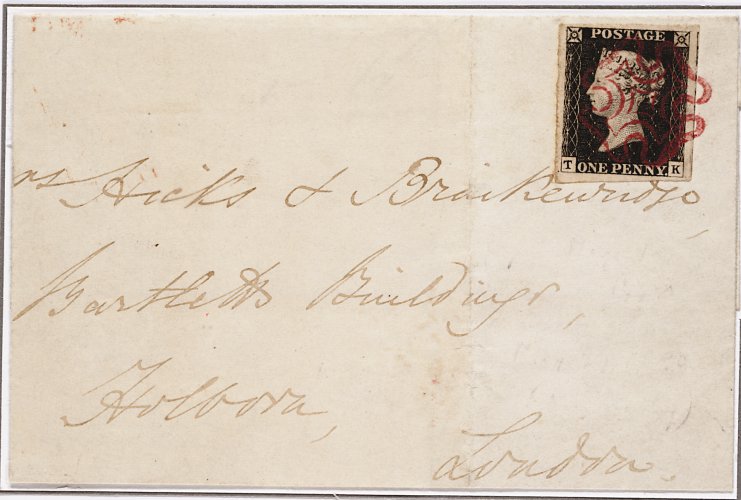 POSTAGE
T ONE PENNY K
rs Hicks & Braikenridge,
Bartletts Buildings,
Holborn,
London.